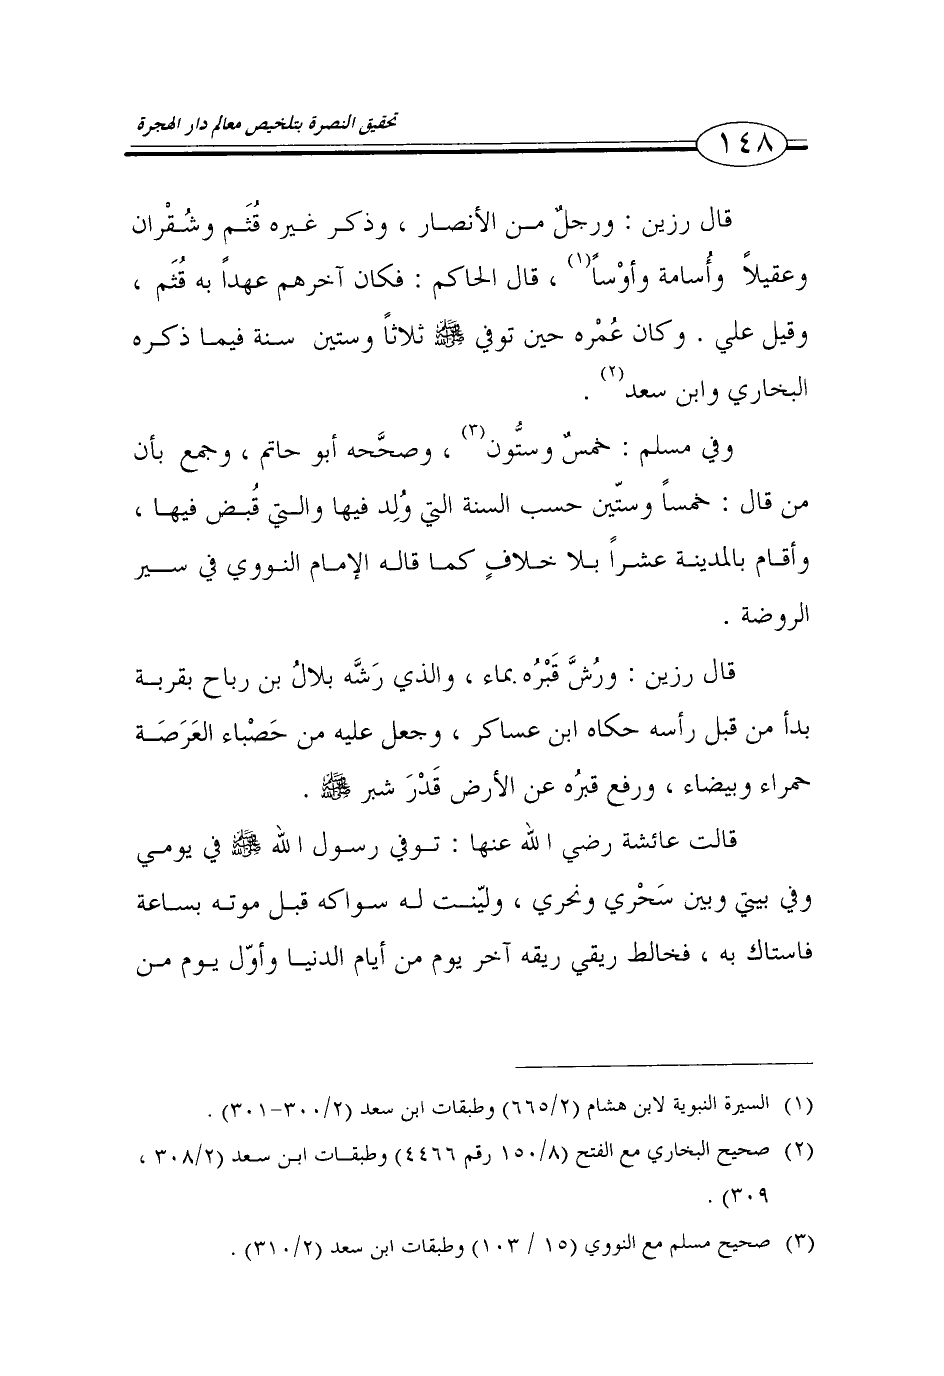 تحقيق النصرة بتلخيص معالم دار الهجرة
١٤٨
قال رزين : ورجلٌ من الأنصار ، وذكر غيره قُثَم وشُقْران
وعقيلاً وأُسامة وأوْساً(١) ، قال الحاكم : فكان آخرهم عهداً به قُثَم ،
وقيل علي . وكان عُمْره حين توفي ﷺ ثلاثاً وستين سنة فيما ذكره
البخاري وابن سعد(٢) .
وفي مسلم : خمسٌ وستُّون(٣) ، وصحَّحه أبو حاتم ، وجمع بأن
من قال : خمساً وستّين حسب السنة التي وُلِد فيها والتي قُبض فيها ،
وأقام بالمدينة عشراً بلا خلافٍ كما قاله الإمام النووي في سير
الروضة .
قال رزين : ورُشَّ قَبْرُه بماء ، والذي رَشَّه بلالُ بن رباح بقربة
بدأ من قبل رأسه حكاه ابن عساكر ، وجعل عليه من حَصْباء العَرَصَة
حمراء وبيضاء ، ورفع قبرُه عن الأرض قَدْرَ شبر ﷺ .
قالت عائشة رضي الله عنها : توفي رسول الله ﷺ في يومي
وفي بيتي وبين سَحْري ونحري ، وليّنت له سواكه قبل موته بساعة
فاستاك به ، فخالط ريقي ريقه آخر يوم من أيام الدنيا وأوّل يوم من
(١) السيرة النبوية لابن هشام (٦٦٥/٢) وطبقات ابن سعد (٣٠٠/٢-٣٠١) .
(٢) صحيح البخاري مع الفتح (١٥٠/٨ رقم ٤٤٦٦) وطبقات ابن سعد (٣٠٨/٢ ،
٣٠٩) .
(٣) صحيح مسلم مع النووي (١٥ / ١٠٣) وطبقات ابن سعد (٣١٠/٢) .